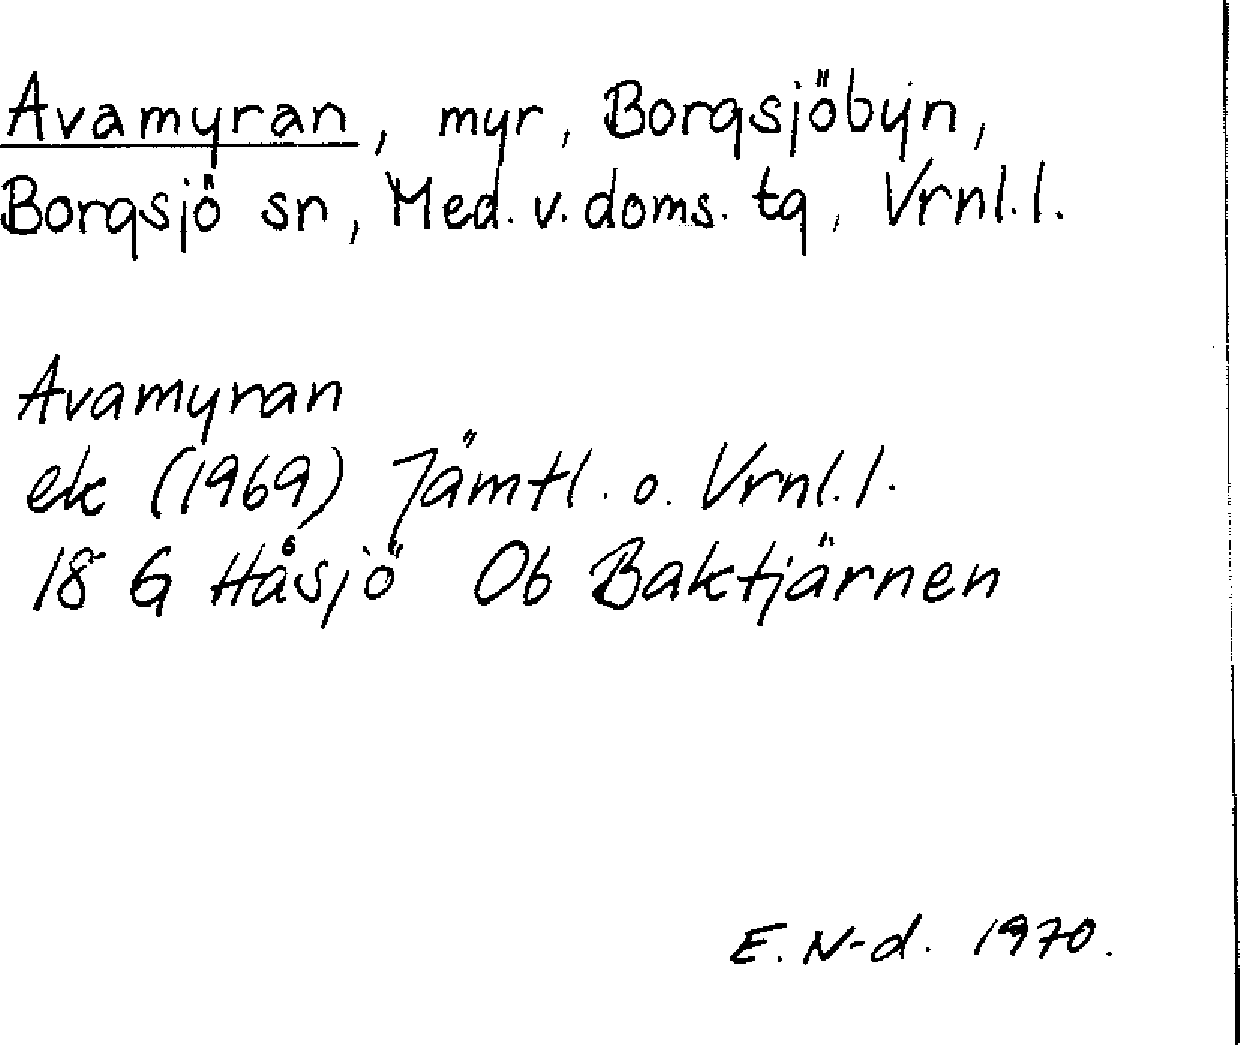 Avamyran, myr, Borgsjöbyn,
Borgsjö sn, Med. v. doms. tg, Vrnl. l.
Avamyran
ek (1969) Jämtl. o. Vrnl. l.
18 G Håsjö Ob Baktjärnen
E. N-d. 1970.